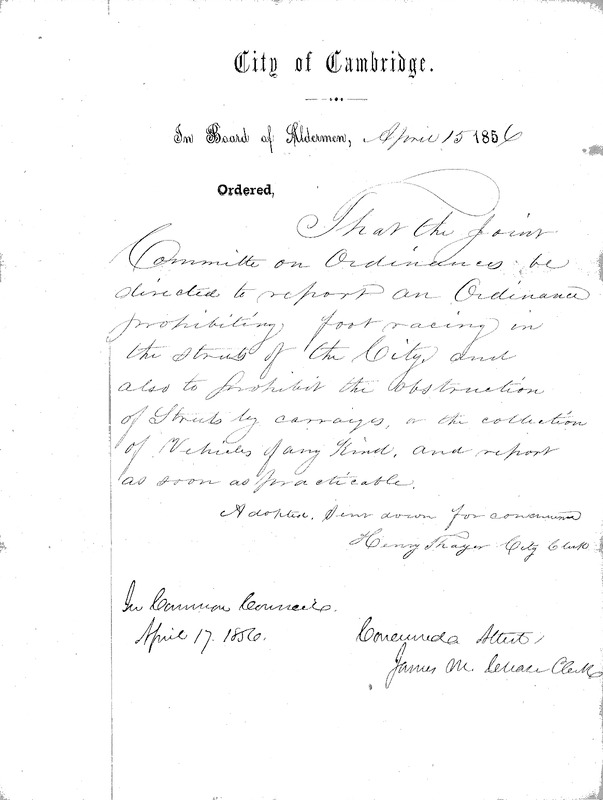 City of Cambridge.
In Board of Aldermen, April 15 1856
Ordered,
That the Joint
Committe on Ordinances be
directed to report an Ordinance
prohibiting foot racing in
the streets of the City, and
also to prohibit the obstruction
of Streets by carraiges, or the collection
of Vehicles of any Kind, and report
as soon as practicable.
Adopted. Sent down for concurrence
Henry Thayer City Clerk
In Common Council.
April 17. 1856.
Concurred Attest,
James M. Clerk